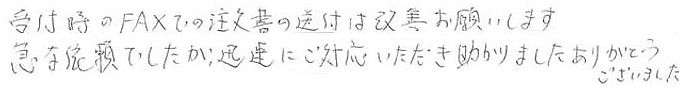 受付時のFAXでの注文書の送付は改善お願いします
急な依頼でしたが、迅速にご対応いただき助かりましたありがとう
ございました